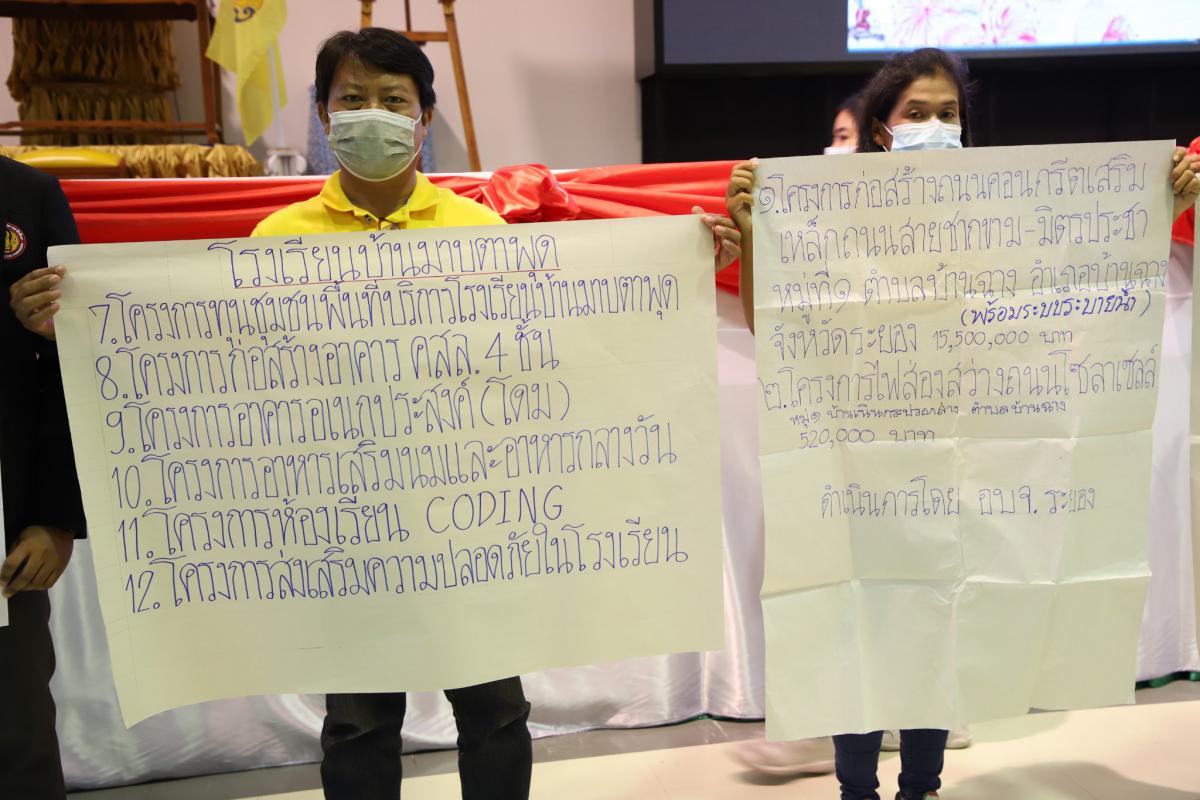 โรงเรียนบ้านมาบตาพุด
7.โครงการทุนชุมชนพื้นที่บริการโรงเรียนบ้านมาบตาพุด
8.โครงการก่อสร้างอาคาร คสล. 4 ชั้น
9.โครงการอาคารอเนกประสงค์ (โดม)
10.โครงการอาหารเสริมนมและอาหารกลางวัน
11.โครงการห้องเรียน CODING
12.โครงการส่งเสริมความปลอดภัยในโรงเรียน
๑.โครงการก่อสร้างถนนคอนกรีตเสริม
เหล็กถนนสายชากขาม-มิตรประชา
หมู่ที่๑ ตำบลบ้านฉาง อำเภอบ้านฉาง
(พร้อมระบบระบายน้ำ)
จังหวัดระยอง 15,500,000 บาท
๒.โครงการไฟส่องสว่างถนนโซลาเซลล์
หมู่๑ บ้านเนินกระปรอกล่าง ตำบลบ้านฉาง
520,000 บาท
ดำเนินการโดย อบจ.ระยอง